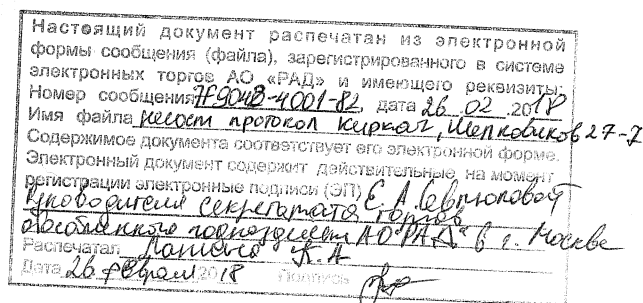 Настоящий документ распечатан из электронной
формы сообщения (файла), зарегистрированного в системе
электронных торгов АО «РАД» и имеющего реквизиты:
Номер сообщения 7F9048-4001-82, дата 26 02 2018
Имя файла несост протокол Киржач, Шелковиков 27-7
Содержимое документа соответствует его электронной форме.
Электронный документ содержит действительные на момент
регистрации электронные подписи (ЭП) Е. А.
Руководителя секретариата торгов
обособленного подразделения АО "РАД" в г. Москве
Распечатал А. А
Дата 26 февраля 2018 Подпись